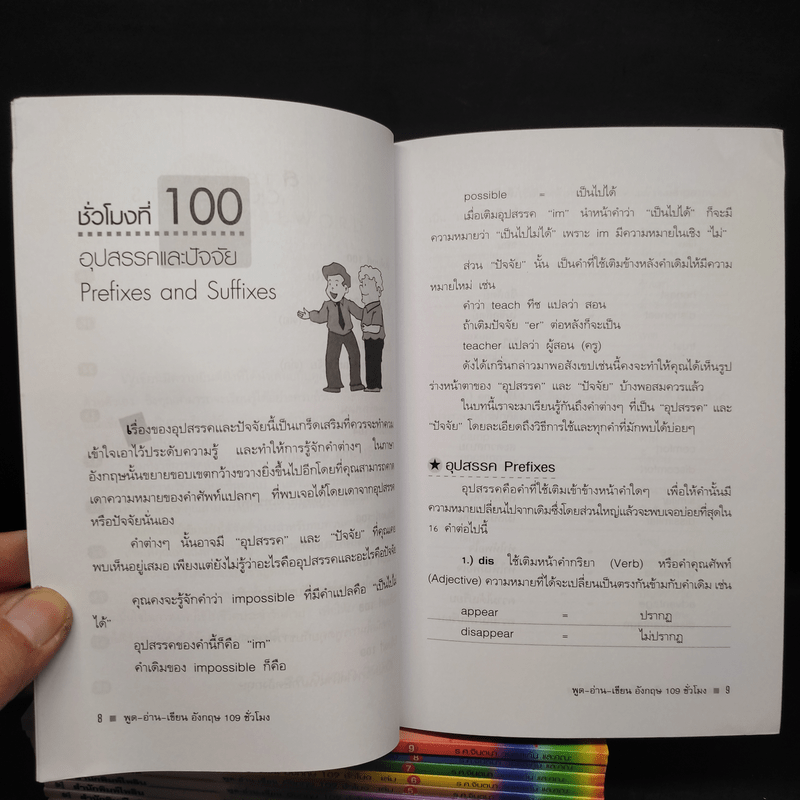 ชั่วโมงที่ 100
อุปสรรคและปัจจัย
Prefixes and Suffixes
เรื่องของอุปสรรคและปัจจัยนี้เป็นเกร็ดเสริมที่ควรจะทำความ
เข้าใจเอาไว้ประดับความรู้ และทำให้การรู้จักคำต่างๆ ในภาษา
อังกฤษนั้นขยายขอบเขตกว้างขวางยิ่งขึ้นไปอีกโดยที่คุณสามารถคาด
เดาความหมายของคำศัพท์แปลกๆ ที่พบเจอได้โดยเดาจากอุปสรรค
หรือปัจจัยนั่นเอง
คำต่างๆ นั้นอาจมี "อุปสรรค" และ "ปัจจัย" ที่คุณเคย
พบเห็นอยู่เสมอ เพียงแต่ยังไม่รู้ว่าอะไรคืออุปสรรคและอะไรคือปัจจัย
คุณคงจะรู้จักคำว่า impossible ที่มีคำแปลคือ "เป็นไปไม่
ได้"
อุปสรรคของคำนี้ก็คือ "im"
คำเดิมของ impossible ก็คือ
8 ■ พูด-อ่าน-เขียน อังกฤษ 109 ชั่วโมง
possible = เป็นไปได้
เมื่อเติมอุปสรรค "im" นำหน้าคำว่า "เป็นไปได้" ก็จะมี
ความหมายว่า "เป็นไปไม่ได้" เพราะ im มีความหมายในเชิง "ไม่"
ส่วน "ปัจจัย" นั้น เป็นคำที่ใช้เติมข้างหลังคำเดิมให้มีความ
หมายใหม่ เช่น
คำว่า teach ทีช แปลว่า สอน
ถ้าเติมปัจจัย "er" ต่อหลังก็จะเป็น
teacher แปลว่า ผู้สอน (ครู)
ดังได้เกริ่นกล่าวมาพอสังเขปเช่นนี้คงจะทำให้คุณได้เห็นรูป
ร่างหน้าตาของ "อุปสรรค" และ "ปัจจัย" บ้างพอสมควรแล้ว
ในบทนี้เราจะมาเรียนรู้กันถึงคำต่างๆ ที่เป็น "อุปสรรค" และ
"ปัจจัย" โดยละเอียดถึงวิธีการใช้และทุกคำที่มักพบได้บ่อยๆ
★ อุปสรรค Prefixes
อุปสรรคคือคำที่ใช้เติมเข้าข้างหน้าคำใดๆ เพื่อให้คำนั้นมี
ความหมายเปลี่ยนไปจากเดิมซึ่งโดยส่วนใหญ่แล้วจะพบเจอบ่อยที่สุดใน
16 คำต่อไปนี้
1.) dis ใช้เติมหน้าคำกริยา (Verb) หรือคำคุณศัพท์
(Adjective) ความหมายที่ได้จะเปลี่ยนเป็นตรงกันข้ามกับคำเดิม เช่น
appear = ปรากฏ
disappear = ไม่ปรากฏ
พูด-อ่าน-เขียน อังกฤษ 109 ชั่วโมง ■ 9
9
8
7
6
5